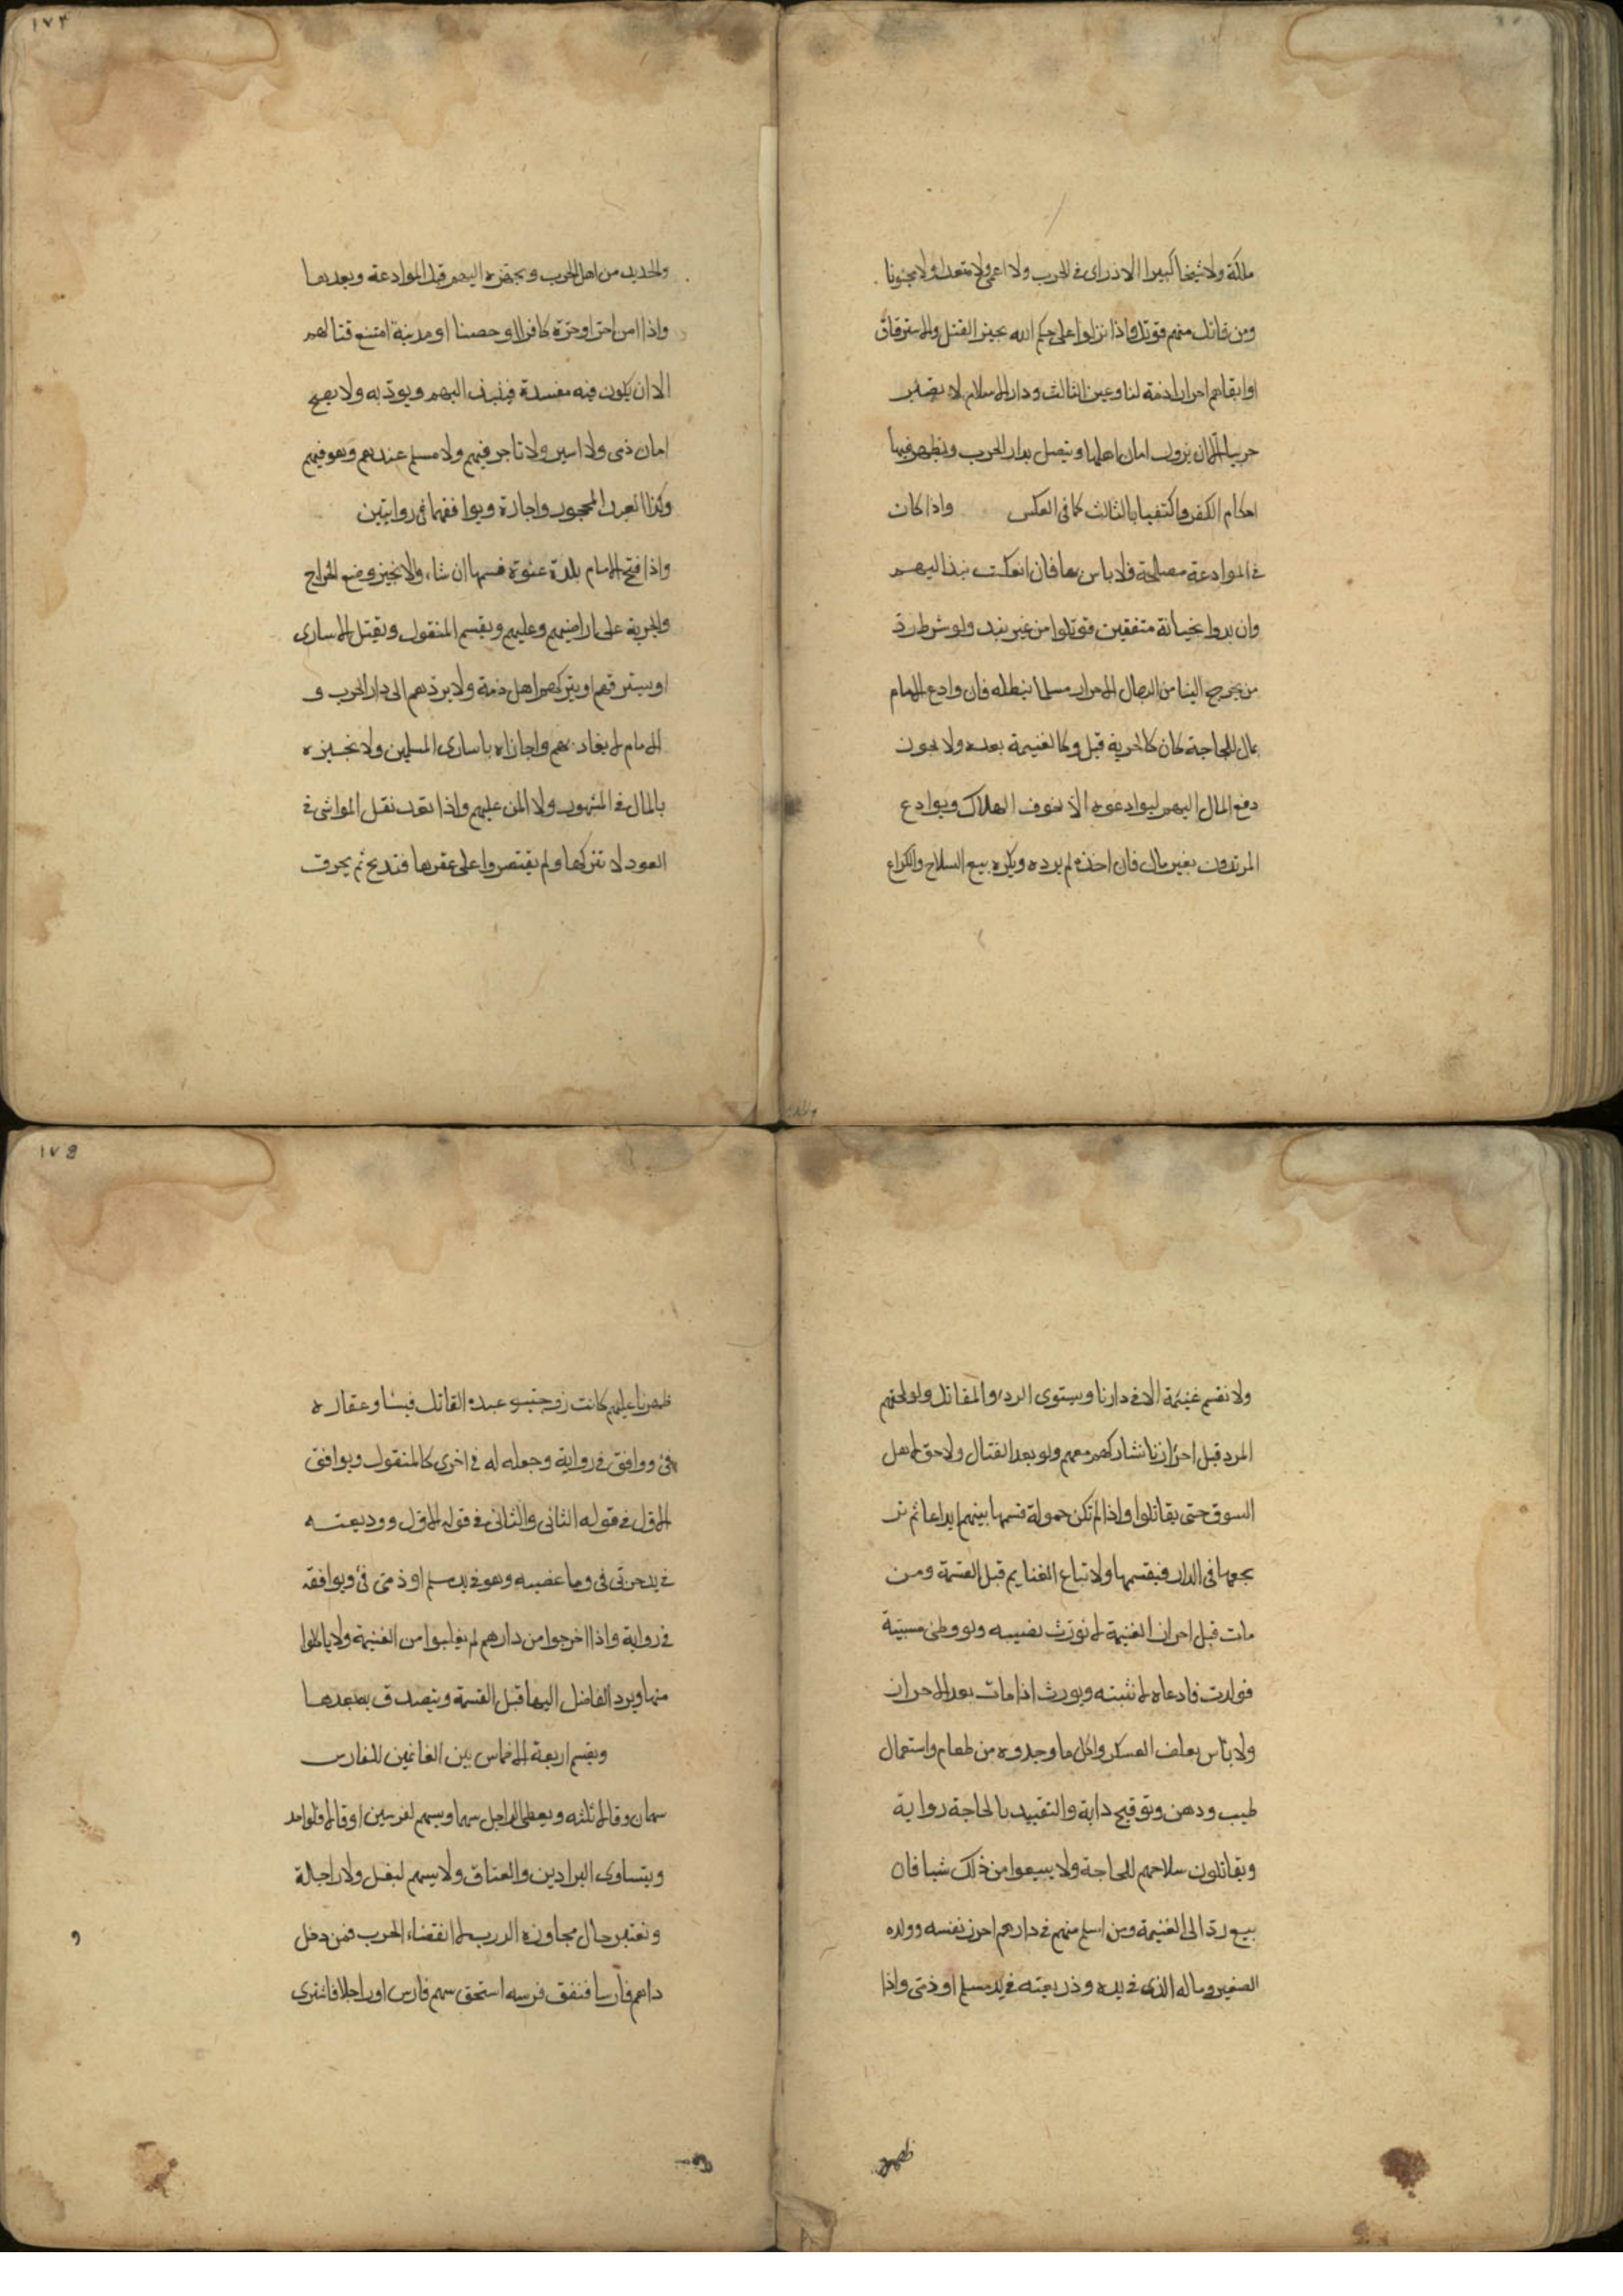 ملكة ولا شيخا كبيرا الا ذا راى فى الحرب ولا اعمى ولا مقعدا ولا مجنونا
ومن قاتل منهم قوتل واذا نزلوا على حكم الله يجيز القتل والاسترقاق
او ابقاهم احرارا ذمة لنا وعين الثالث ودار الاسلام لا تصير
حربيا الا ان يزول امان اهلها ويتصل بدار الحرب وتظهر فيها
احكام الكفر واكتفيا بالثالث كما فى العكس واذا كان
فى الموادعة مصلحة فلا باس بها فان انعكست نبذ اليهم
وان بدوا بخيانة متفقين قوتلوا من غير نبذ ولو شرط رد
من يخرج الينا من الرجال الاحرار مسلما نبطله فان وادع الامام
بمال للحاجة كان كالجزية قبل وكالغنيمة بعده ولا يجوز
دفع المال اليهم ليوادعوه الا لخوف الهلاك ويوادع
المرتدون بغير مال فان اخذه لم يرده ويكره بيع السلاح والكراع
١٧٤
والحديد من اهل الحرب وتجهيزه اليهم قبل الموادعة وبعدها
واذا امن حر او حرة كافرا او حصنا او مدينة امتنع قتالهم
الا ان يكون فيه مفسدة فينبذ اليهم ويودب ولا يصح
امان ذمى ولا اسير ولا تاجر فيهم ولا مسلم عندهم وهو فيهم
وكذا العبد المحجور واجازه ويوافقهما فى روايتين
واذا فتح الامام بلدة عنوة قسمها ان شاء والا نجيز وضع الخراج
والجزية على اراضيهم وعليهم ويقسم المنقول ويقتل الاسارى
او يسترقهم او يتركهم اهل ذمة ولا يردهم الى دار الحرب و
الامام لا يفاد بهم واجازاه باسارى المسلمين ولا نجيزه
بالمال فى المشهور ولا المن عليهم واذا تعذر نقل المواشى فى
العود لا نتركها ولم يقتصروا على عقرها فتذبح ثم يحرق
ولا نقسم غنيمة الا فى دارنا ويستوى الردء والمقاتل ولو لحقهم
المرد قبل احرازنا نشاركهم معهم ولو بعد القتال ولا حق لاهل
السوق حتى يقاتلوا واذا لم تكن حمولة قسمها بينهم ايداعا ثم نر
بجعها فى الدار فيقسمها ولا تباع الغنايم قبل القسمة ومن
مات قبل احراز الغنيمة لا نورث نصيبه ولو وطئ مسبية
فولدت فادعاه لا نثبته ويورث اذا مات بعد الاحراز
ولا باس بعلف العسكر واكل ما وجدوه من طعام واستعمال
طيب ودهن وتوقيح دابة والتقييد بالحاجة رواية
ويقاتلون بسلاحهم للحاجة ولا يبيعوا من ذلك شيا فان
بيع رد الى الغنيمة ومن اسلم منهم فى دارهم احرز نفسه وولده
الصغير وماله الذى فى يده ووديعته فى يد مسلم او ذمى واذا
١٧٥
ظهرنا عليهم كانت زوجته وعبده القاتل فيئا وعقاره
فئ ووافق فى رواية وجعله له فى اخرى كالمنقول ويوافق
الاول فى قوله الثانى والثانى فى قوله الاول ووديعته
فى يد حربى فئ وما غصبه وهو فى يد مسلم او ذمى فئ ويوافقه
فى رواية واذا اخرجوا من دارهم لم يعلفوا من الغنيمة ولا ياكلوا
منها ويرد الفاضل اليها قبل القسمة ويتصدق به بعدها
ويقسم اربعة الاخماس بين الغانمين للفارس
سهمان وقالا ثلثه ويعطى الراجل سهما ويسهم لفرسين او قالا لواحد
ويتساوى البرادين والعتاق ولا يسهم لبغل ولا راحلة
ونعتبر حال مجاوزة الدرب لا انقضاء الحرب فمن دخل
دارهم فارسا فنفق فرسه استحق سهم فارس او راجلا فاشترى